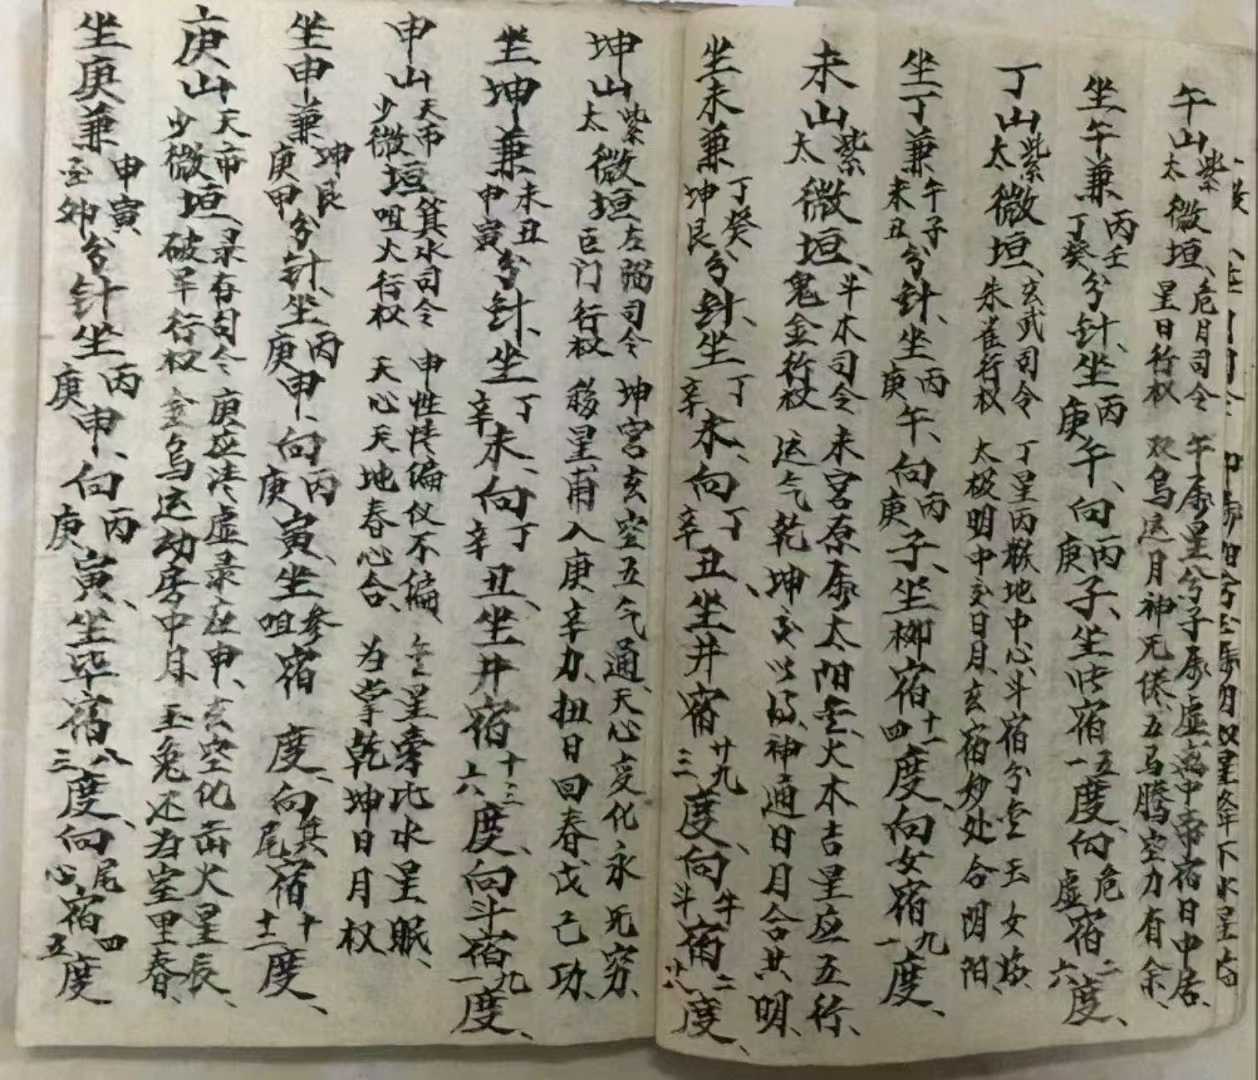 午山紫太微垣、危月司令星日行权 午属星兮子属虚离中帝宿日中居、双乌运月神无倦、五马腾空力有余、
坐午兼丙壬丁癸分针、坐丙庚午、向丙庚子、坐宿五一度、向危虚宿二六度、
丁山紫太微垣、玄武司令朱雀行权 丁星丙照地中心、斗宿分金玉女、太极明中交日月、玄宿妙处合阴阳、
坐丁兼午子未丑分针、坐丙庚午、向丙庚子、坐柳宿十一四度、向女宿九一度、
未山紫太微垣、斗木司令鬼金行权 未宫原属太阳金、火木吉星应五行、运气乾坤交以、神通日月合共明、
坐未兼丁癸坤艮分针、坐丁辛未、向丁辛丑、坐井宿廿九三度、向牛斗宿二廿度、
坤山紫太微垣左弼司令巨门行权 坤宫玄空五气通、天心变化永无穷、移星甫入庚辛力、扭日回春戊己功、
坐坤兼未丑申寅分针、坐丁辛未、向丁辛丑、坐井宿十三六度、向斗宿九一度、
申山天市少微垣箕水司令咀火行权 申性情偏仪不偏、金星牵比水星眠、天心天地春心合、为掌乾坤日月权
坐申兼坤艮庚甲分针、坐丙庚申、向丙庚寅、坐参咀宿 度、向箕尾宿十十二度、
庚山天市少微垣、录存司令破军行权 庚应清虚录在申、玄空化出火星辰、金乌运动房中月、玉兔还为室里春、
坐庚兼申寅分针坐丙庚申、向丙庚寅、坐毕宿八三度、向尾心宿四五度、